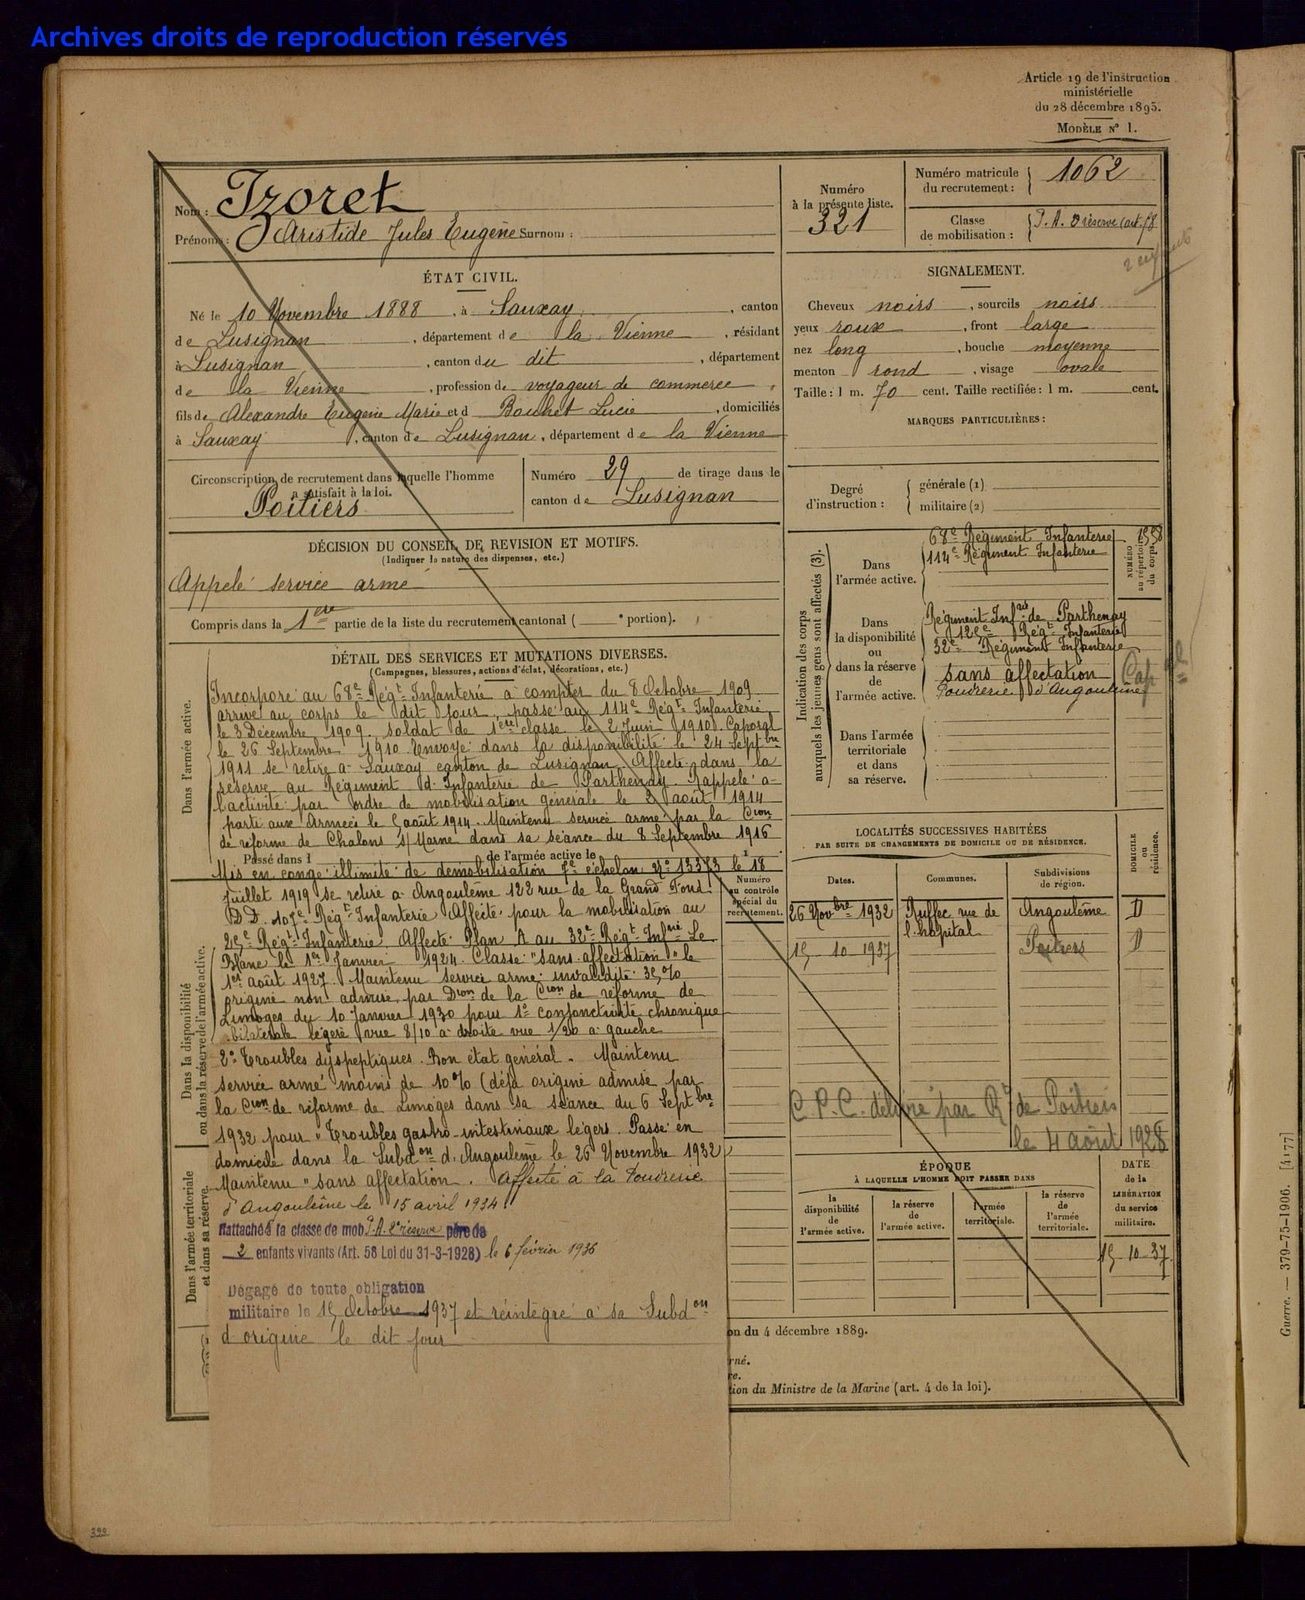 Archives droits de reproduction réservés
Article 19 de l'instruction
ministérielle
du 28 décembre 1895.
MODÈLE N° 1.
Nom : Izoret
Prénoms : Aristide Jules Eugène Surnom :
Numéro
à la présente liste.
321
Numéro matricule
du recrutement : 1062
Classe
de mobilisation : P.A. 2 réserve (art. 58
ÉTAT CIVIL.
Né le 10 Novembre 1888, à Sauxay, canton
de Lusignan, département de la Vienne, résidant
à Lusignan, canton du dit, département
de la Vienne, profession de voyageur de commerce,
fils de Alexandre Eugène Marie et d Bouhet Lucie, domiciliés
à Sauxay, canton de Lusignan, département de la Vienne
SIGNALEMENT.
Cheveux noirs, sourcils noirs
yeux roux, front large
nez long, bouche moyenne
menton rond, visage ovale
Taille : 1 m. 70 cent. Taille rectifiée : 1 m. cent.
MARQUES PARTICULIÈRES :
Circonscription de recrutement dans laquelle l'homme
a satisfait à la loi.
Poitiers
Numéro 29 de tirage dans le
canton de Lusignan
Degré
d'instruction :
générale (1)
militaire (2)
DÉCISION DU CONSEIL DE REVISION ET MOTIFS.
(Indiquer la nature des dispenses, etc.)
Appelé service armé
Compris dans la 1ère partie de la liste du recrutement cantonal ( e portion).
Indication des corps
auxquels les jeunes gens sont affectés (3).
Dans
l'armée active.
68e Régiment Infanterie
114e Régiment Infanterie
NUMÉRO
au répertoire
du corps.
Dans
la disponibilité
ou
dans la réserve
de
l'armée active.
Régiment Infrie de Parthenay
125e Régt Infanterie
32e Régiment Infanterie
sans affectation
Poudrerie d'Angoulême
Dans l'armée
territoriale
et dans
sa réserve.
DÉTAIL DES SERVICES ET MUTATIONS DIVERSES.
(Campagnes, blessures, actions d'éclat, décorations, etc.)
Dans l'armée active.
Incorporé au 68e Régt Infanterie à compter du 8 Octobre 1909
arrivé au corps le dit jour, passé au 114e Régt Infanterie
le 3 Décembre 1909. soldat de 1ère classe le 2 Juin 1910. Caporal
le 26 Septembre 1910. Envoyé dans la disponibilité le 24 Septbre
1911 se retire à Sauxay canton de Lusignan. Affecté dans la
réserve au Régiment d'Infanterie de Parthenay. Rappelé à
l'activité par ordre de mobilisation générale le 2 août 1914
parti aux Armées le 5 août 1914. Maintenu service armé par la Cion
de réforme de Chalons s/ Marne dans sa séance du 8 Septembre 1916
Passé dans l de l'armée active le
Mis en congé illimité de démobilisation 7e échelon No 13373 le 18
Juillet 1919 se retire à Angoulême 122 rue de la Grand Fond.
D.D. 107e Régt Infanterie. Affecté pour la mobilisation au
25e Régt Infanterie. Affecté Plan A au 32e Régt Infrie Le
Blanc le 1er Janvier 1924. Classé "sans affectation" le
1er août 1927. Maintenu service armé invalidité 35%
origine non admise par Dion de la Cion de réforme de
Limoges du 10 Janvier 1930 pour 1° conjonctivite chronique
bilatérale légère vue 8/10 à droite vue 1/20 à gauche
2° Troubles dyspeptiques. Bon état général. Maintenu
service armé moins de 10% (déjà origine admise par
la Cion de réforme de Limoges dans sa séance du 6 Septbre
1932 pour "Troubles gastro-intestinaux légers. Passé en
domicile dans la Subdon d'Angoulême le 26 Novembre 1932
Maintenu "sans affectation. Affecté à la Poudrerie
d'Angoulême le 15 avril 1934
Rattaché à la classe de mob P.A. 2e réserve père de
2 enfants vivants (Art. 58 Loi du 31-3-1928) le 6 février 1936
Dégagé de toute obligation
militaire le 15 Octobre 1937 et réintégré à sa Subdon
d'origine le dit jour
Dans la disponibilité
ou dans la réserve de l'armée active.
Dans l'armée territoriale
et dans sa réserve.
Numéro
au contrôle
spécial du
recrutement.
LOCALITÉS SUCCESSIVES HABITÉES
PAR SUITE DE CHANGEMENTS DE DOMICILE OU DE RÉSIDENCE.
DOMICILE
ou
résidence.
Dates. Communes. Subdivisions
de région.
26 Novbre 1932 Ruffec rue de Angoulême D
l'hôpital
15 10 1937 Poitiers D
C.P.C. délivré par Rt de Poitiers
le 4 août 1928
ÉPOQUE
À LAQUELLE L'HOMME DOIT PASSER DANS
la
disponibilité
de
l'armée active.
la réserve
de
l'armée active.
l'armée
territoriale.
la réserve
de
l'armée
territoriale.
DATE
de la
LIBÉRATION
du service
militaire.
15-10-37
on du 4 décembre 1889.
rné.
re.
tion du Ministre de la Marine (art. 4 de la loi).
Guerre. — 379-75-1906. [4177]